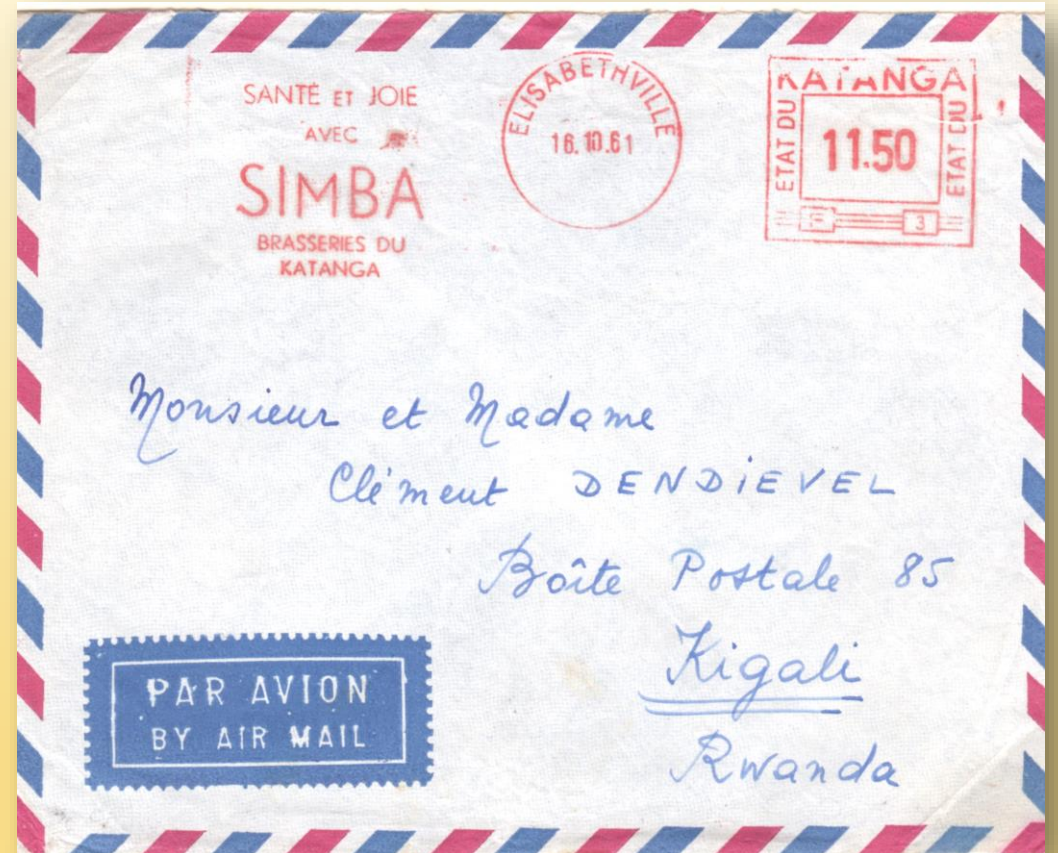 SANTÉ ET JOIE
AVEC
SIMBA
BRASSERIES DU
KATANGA
ELISABETHVILLE
16.10.61
KATANGA
ETAT DU
11.50
ETAT DU
F 3
Monsieur et Madame
Clément DENDIEVEL
Boîte Postale 85
Kigali
Rwanda
PAR AVION
BY AIR MAIL